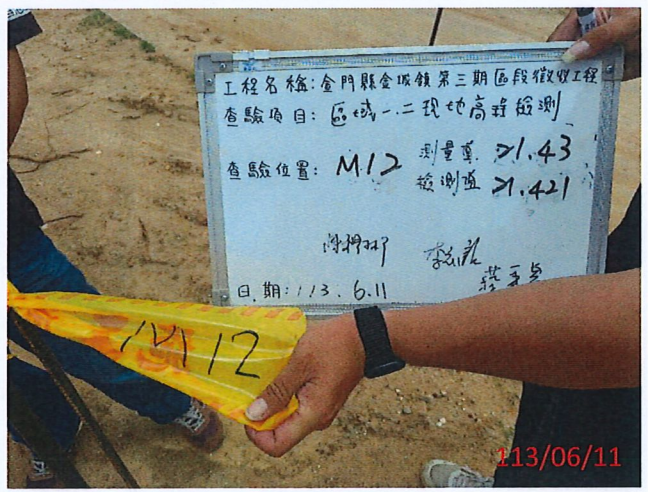 工程名稱:金門縣金城鎮第三期區段徵收工程
查驗項目:區域一.二現地高程檢測
查驗位置: M12
測量值 21.43
檢測值 21.421
日期:113.6.11
M12
113/06/11